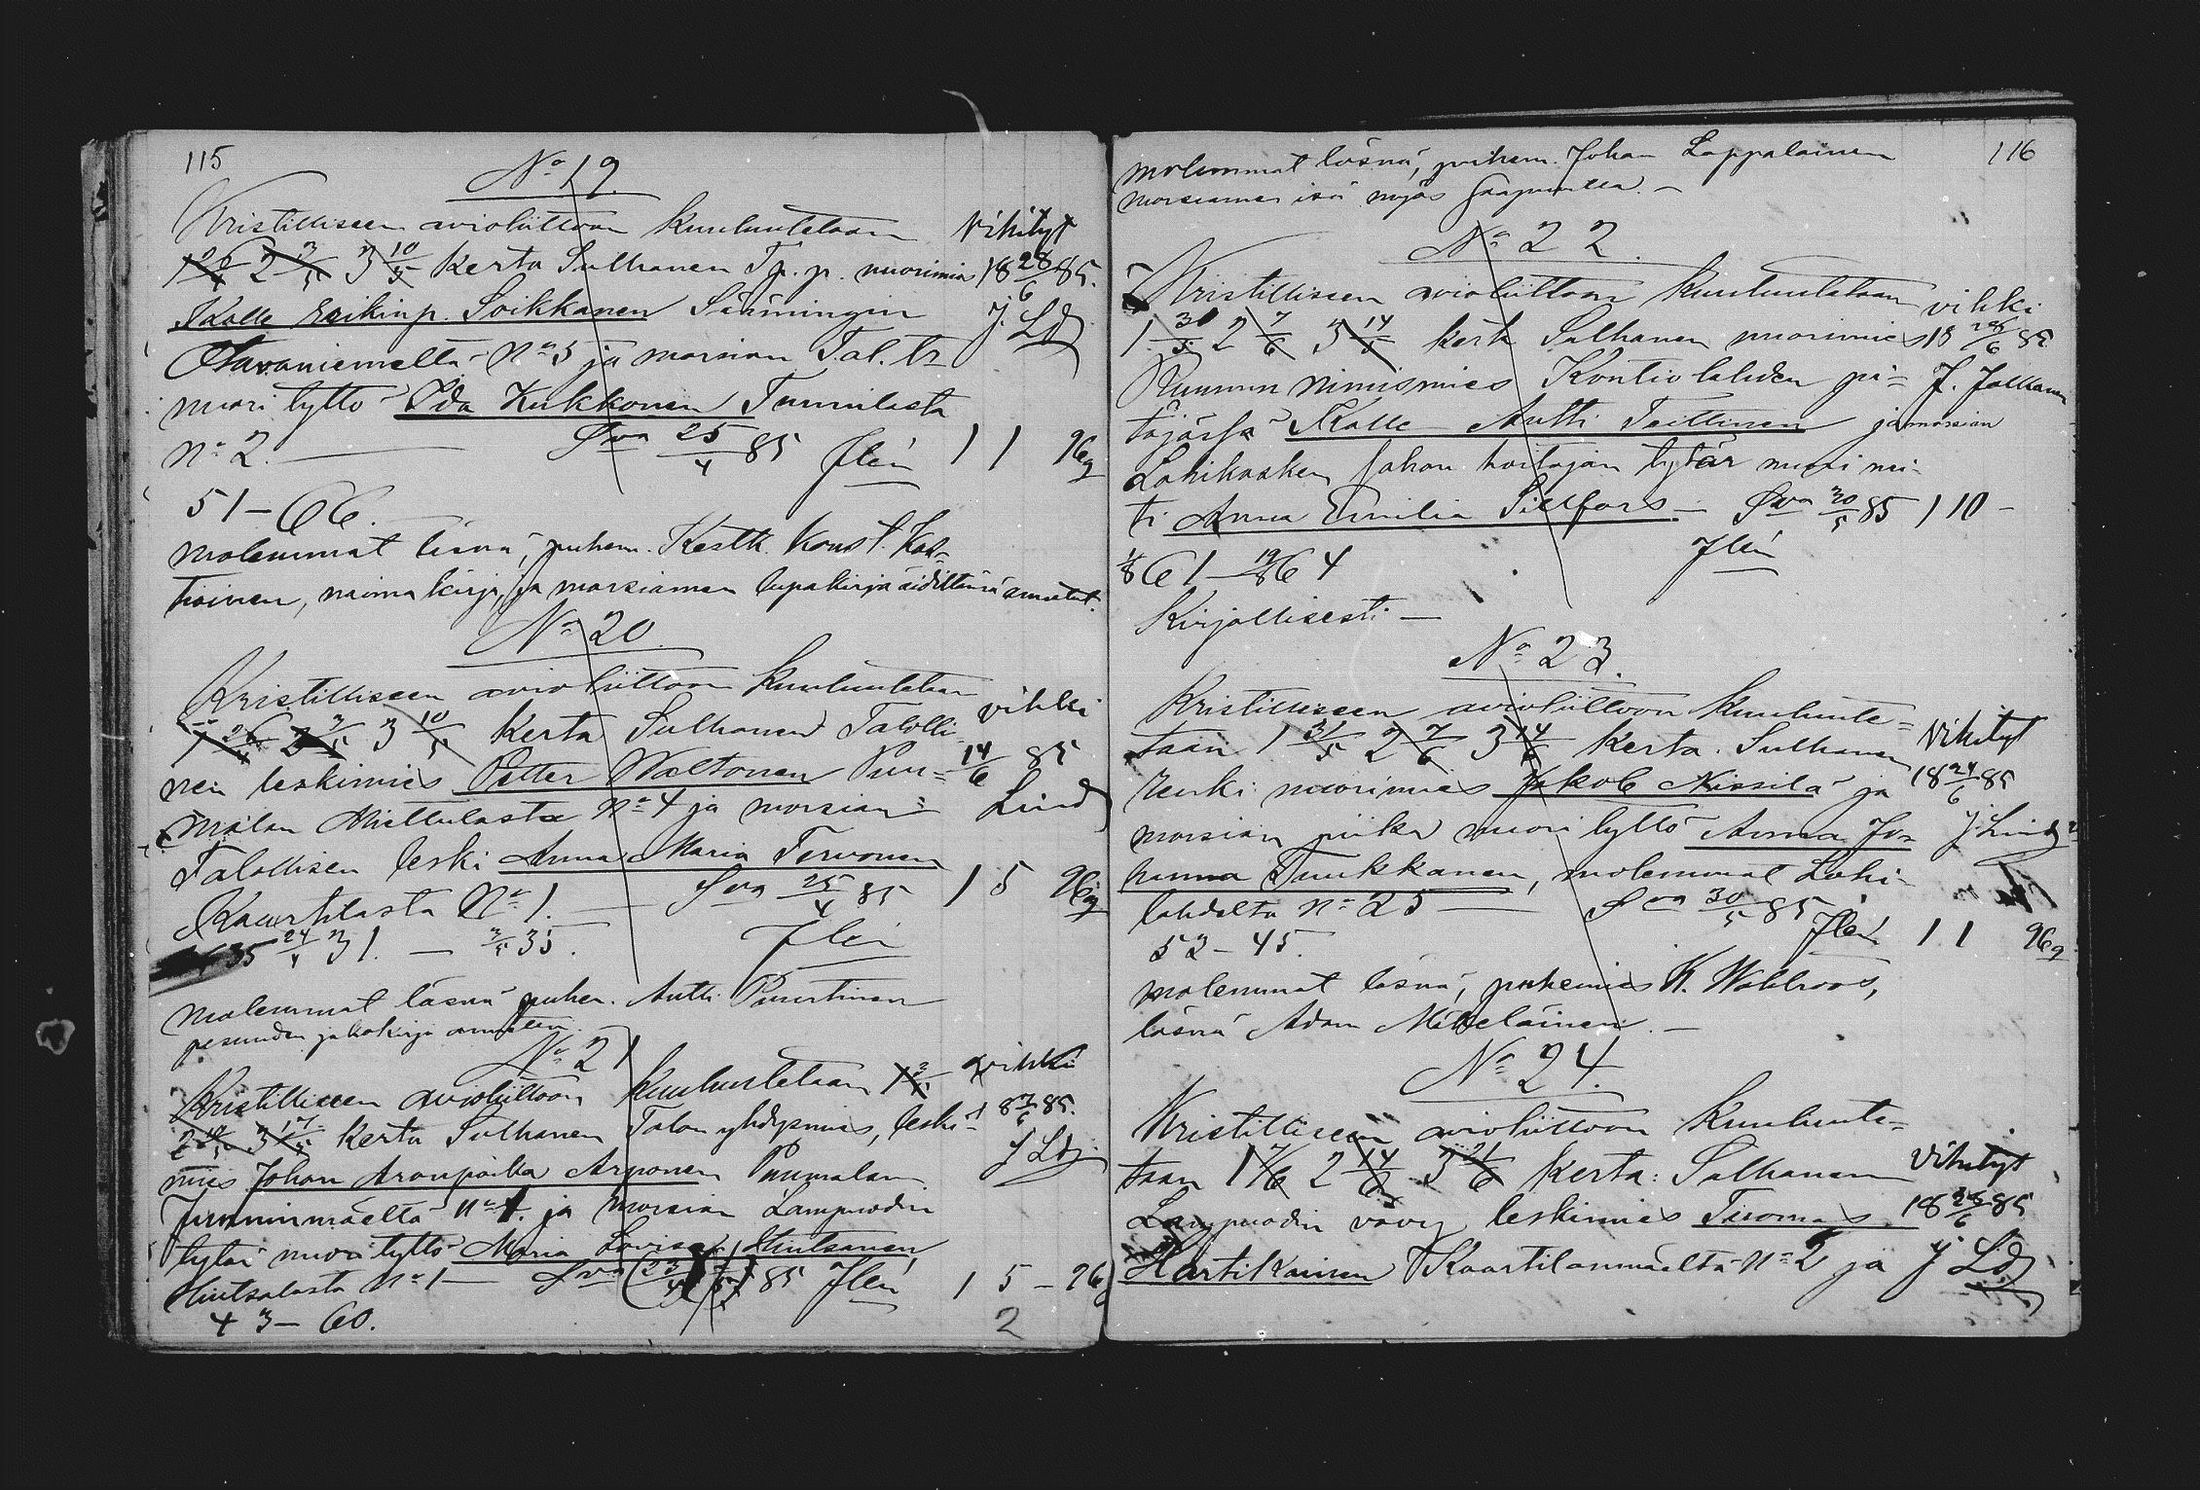 115
No 19.
Kristilliseen avioliittoon kuulutetaan
1 26/4 2 3/5 3 10/5 kerta Sulhanen Tp. p. nuorimies
Kalle Erikinp. Soikkanen Särmingin
Otavaniemeltä No 5 ja morsian Tal. tr
nuori tyttö Ida Kukkonen Tunnilasta
No 2. Sva 25/4 85 Jlén
Vihityt
18 28/6 85.
J. Ldj
1 1 96
51 – 66.
molemmat läsnä, puhem. Kestk. Konst. Kok-
koinen, naimakirja, ja morsiamen lupakirja äidiltänsä annetut.
No 20.
Kristilliseen avioliittoon kuulutetaan
1 26/4 2 3/5 3 10/5 kerta Sulhanen Talolli
nen leskimies Petter Waltonen Puu=
malan Miettulasta No 4 ja morsian
Talollisen leski Anna Maria Tervonen
Kaartilasta No 1. Sva 25/4 85
Jlén
vihki
14/6 85
Lind
1 5 96
35 24/4 31. — 3/5 35.
molemmat läsnä puhem. Antti Puurtinen
No 21
Kristilliseen avioliittoon kuulutetaan 1 3/5
2 10/5 3 17/5 kerta Sulhanen Talon yhdysmies, leski-
mies Johan Aronpoika Arponen Puumalan
No 1. ja morsian Lampuodin
tytär nuori tyttö Maria Lovisa Hintsanen,
Hintsalasta No 1 — Sva 85 Jlén
vihki
J Ldj
1 5 – 96
43 – 60.
2
116
molemmat läsnä, puhem. Johan Lappalainen
morsiamen isä myös saapuvilla. —
No 22.
Kristilliseen avioliittoon kuulutetaan
1 31/5 2 7/6 3 14/6 kerta Sulhanen nuorimies
Ruunun nimismies Kontiolahden pi=
täjässä Kalle Antti Teittinen ja morsian
Lohikosken sahan hoitajan tytär nuori nei-
ti Anna Emilia Sillfors — Sva 30/5 85
Jlén
vihki
18 28/6 85
1 10 –
1/8 61 — 19/8 64
Kirjallisesti —
No 23.
Kristilliseen avioliittoon kuulute=
taan 1 31/5 2 7/6 3 14/6 kerta. Sulhanen
renki nuorimies Jakob Nissilä ja
morsian piika nuori tyttö Anna Jo=
hanna Tuukkanen, molemmat Lohi-
lahdelta No 25 — Sva 30/5 85
Jlén
Vihityt
18 24/6 85
1 1 96
53 – 45.
molemmat läsnä, puhemies K. Wahlroos,
läsnä Adam Mikkeläinen. —
No 24.
Kristilliseen avioliittoon kuulute=
taan 1 7/6 2 14/6 3 21/6 kerta: Sulhanen
Lampuodin vävy leskimies Tuomas
Hartikainen Kaartilanmäeltä No 2 ja
Vihityt
18 28/6 85
J Ldj